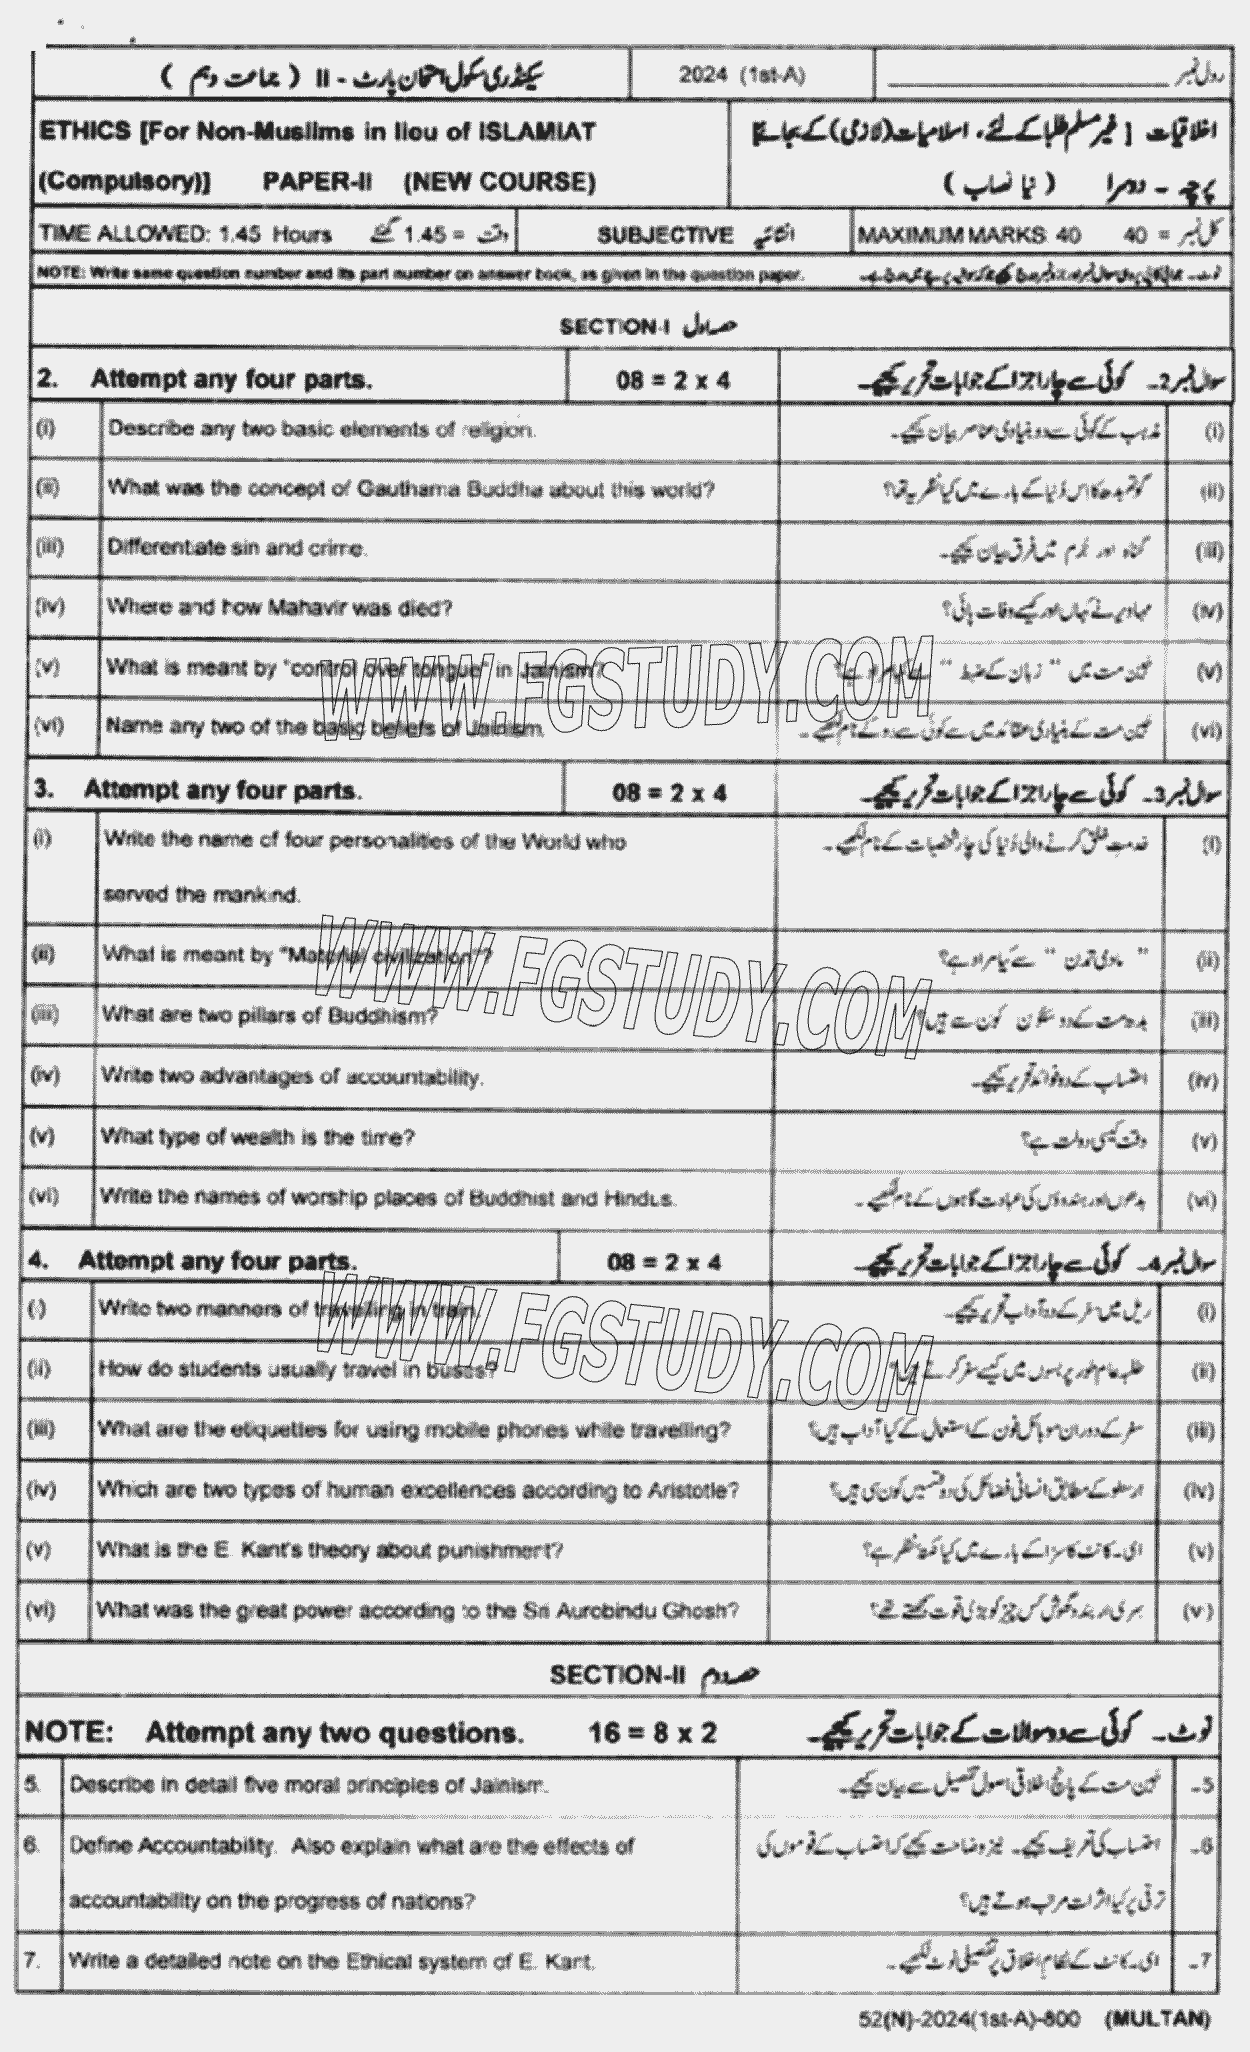 سیکنڈری سکول امتحان پارٹ - II ( جماعت دہم )
2024 (1st-A)
رول نمبر
ETHICS [For Non-Muslims in lieu of ISLAMIAT
(Compulsory)] PAPER-II (NEW COURSE)
اخلاقیات [ غیر مسلم طلبا کے لئے، اسلامیات (لازمی) کے بجائے]
پرچہ - دوسرا ( نیا نصاب )
TIME ALLOWED: 1.45 Hours وقت = 1.45 گھنٹے
SUBJECTIVE انشائیہ
MAXIMUM MARKS 40 کل نمبر = 40
NOTE: Write same question number and its part number on answer book, as given in the question paper.
SECTION-I حصہ اول
2. Attempt any four parts. 08 = 2 x 4 سوال نمبر 2۔ کوئی سے چار اجزا کے جوابات تحریر کیجیے۔
(i) Describe any two basic elements of religion. مذہب کے کوئی سے دو بنیادی عناصر بیان کیجیے۔ (i)
(ii) What was the concept of Gauthama Buddha about this world? گوتم بدھ کا اس دُنیا کے بارے میں کیا نظریہ تھا؟ (ii)
(iii) Differentiate sin and crime. گناہ اور جُرم میں فرق بیان کیجیے۔ (iii)
(iv) Where and how Mahavir was died? مہاویر نے کہاں اور کیسے وفات پائی؟ (iv)
(v) What is meant by "control over tongue" in Jainism? جین مت میں " زبان کے ضبط " سے کیا مراد ہے؟ (v)
(vi) Name any two of the basic beliefs of Jainism. جین مت کے بنیادی عقائد میں سے کوئی سے دو کے نام لکھیے۔ (vi)
WWW.FGSTUDY.COM
3. Attempt any four parts. 08 = 2 x 4 سوال نمبر 3۔ کوئی سے چار اجزا کے جوابات تحریر کیجیے۔
(i) Write the name of four personalities of the World who خدمتِ خلق کرنے والی دُنیا کی چار شخصیات کے نام لکھیے۔ (i)
served the mankind.
(ii) What is meant by "Material civilization"? " مادی تمدن " سے کیا مراد ہے؟ (ii)
WWW.FGSTUDY.COM
(iii) What are two pillars of Buddhism? بدھ مت کے دو ستون کون سے ہیں؟ (iii)
(iv) Write two advantages of accountability. احتساب کے دو فوائد تحریر کیجیے۔ (iv)
(v) What type of wealth is the time? وقت کیسی دولت ہے؟ (v)
(vi) Write the names of worship places of Buddhist and Hindus. بدھوں اور ہندوؤں کی عبادت گاہوں کے نام لکھیے۔ (vi)
4. Attempt any four parts. 08 = 2 x 4 سوال نمبر 4۔ کوئی سے چار اجزا کے جوابات تحریر کیجیے۔
(i) Write two manners of travelling in train. ریل میں سفر کے دو آداب تحریر کیجیے۔ (i)
WWW.FGSTUDY.COM
(ii) How do students usually travel in buses? طلبہ عام طور پر بسوں میں کیسے سفر کرتے ہیں؟ (ii)
(iii) What are the etiquettes for using mobile phones while travelling? سفر کے دوران موبائل فون کے استعمال کے کیا آداب ہیں؟ (iii)
(iv) Which are two types of human excellences according to Aristotle? ارسطو کے مطابق انسانی فضائل کی دو قسمیں کون سی ہیں؟ (iv)
(v) What is the E. Kant's theory about punishment? ای۔ کانٹ کا سزا کے بارے میں کیا نکتہ نظر ہے؟ (v)
(vi) What was the great power according to the Sri Aurobindu Ghosh? سری اور بندو گھوش کس چیز کو بڑی قوت کہتے تھے؟ (v)
SECTION-II حصہ دوم
NOTE: Attempt any two questions. 16 = 8 x 2 نوٹ۔ کوئی سے دو سوالات کے جوابات تحریر کیجیے۔
5. Describe in detail five moral principles of Jainism. جین مت کے پانچ اخلاقی اصول تفصیل سے بیان کیجیے۔ 5۔
6. Define Accountability. Also explain what are the effects of احتساب کی تعریف کیجیے۔ نیز وضاحت کیجیے کہ احتساب کے قوموں کی 6۔
accountability on the progress of nations? ترقی پر کیا اثرات مرتب ہوتے ہیں؟
7. Write a detailed note on the Ethical system of E. Kant. ای۔ کانٹ کے نظامِ اخلاق پر تفصیلی نوٹ لکھیے۔ 7۔
52(N)-2024(1st-A)-800 (MULTAN)